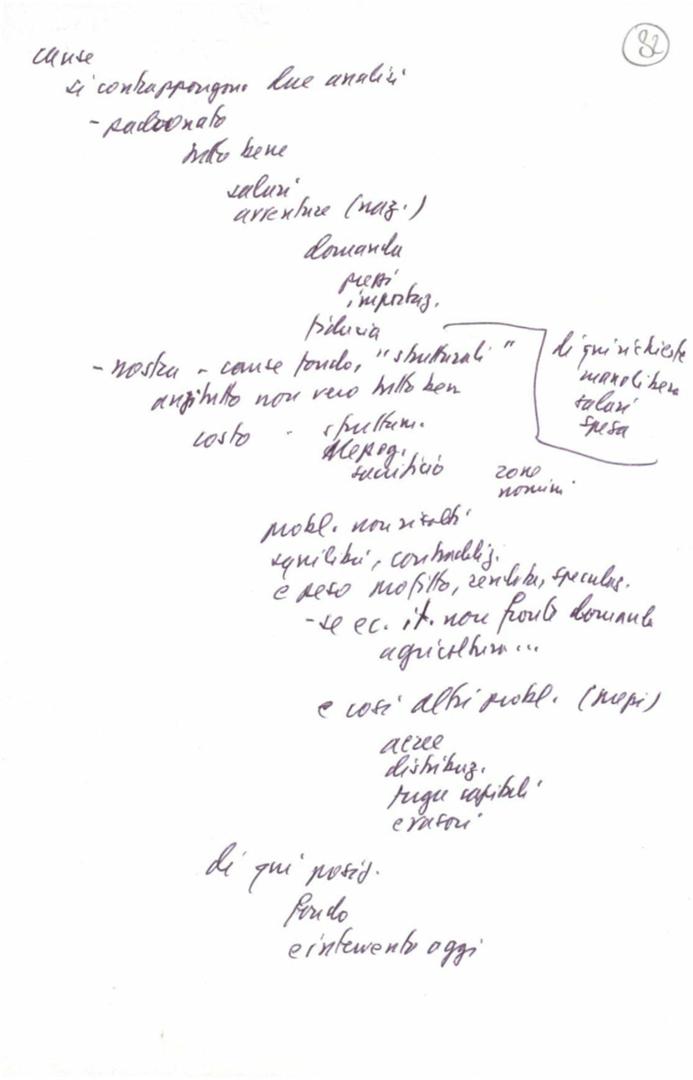 32
cause
si contrappongono due analisi
- padronato
tutto bene
salari
avventure (naz.)
domanda
prezzi
importaz.
fiducia
di qui richieste
mano libera
salari
spesa
- nostra - cause fondo, "strutturali"
anzitutto non vero tutto bene
costo - sfruttam.
sacrificio
zone
uomini
probl. non risolti
squilibri, contraddiz.
e peso profitto, rendita, speculaz.
- se ec. it. non fronte domanda
agricoltura...
e così altri probl. (prezzi)
aree
distribuz.
fuga capitali
evasori
di qui posiz.
fondo
e intervento oggi